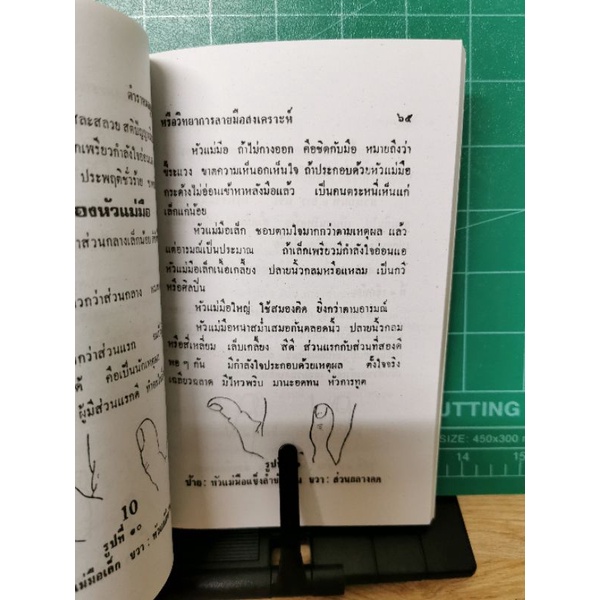 ตำรา
หรือวิทยาการลายมือสงเคราะห์ ๖๕
หัวแม่มือ ถ้าไม่กางออก คือชิดกับมือ หมายถึงว่า
ขี้ระแวง ขาดความเห็นอกเห็นใจ ถ้าประกอบด้วยหัวแม่มือ
กระด้างไม่อ่อนเข้าหาหลังมือแล้ว เป็นคนตระหนี่เห็นแก่
เล็กแก่น้อย
หัวแม่มือเล็ก ชอบตามใจมากกว่าตามเหตุผล แล้ว
แต่อารมณ์เป็นประมาณ ถ้าเล็กเพรียวมีกำลังใจอ่อนแอ
หัวแม่มือเล็กเนื้อเกลี้ยง ปลายนิ้วกลมหรือแหลม เป็นกวี
หรือศิลปิน
หัวแม่มือใหญ่ ใช้สมองคิด ยิ่งกว่าตามอารมณ์
หัวแม่มือหนาสม่ำเสมอกันตลอดนิ้ว ปลายนิ้วกลม
หรือสี่เหลี่ยม เล็บเกลี้ยง สีดี ส่วนแรกกับส่วนที่สองดี
พอ ๆ กัน มีกำลังใจประกอบด้วยเหตุผล ตั้งใจจริง
เฉลียวฉลาด มีไหวพริบ มานะอดทน หัวการทูต
รูปที่
ซ้าย : หัวแม่มือแข็ง ขวา : ส่วนกลางคด
ประพฤติชั่วร้าย
องหัวแม่มือ
ส่วนกลางเล็กน้อย
กว่าส่วนกลาง
กว่าส่วนแรก
คือเป็นนักเหตุผล
ผู้มีส่วนแรกดี
10
รูปที่ ๑๐
มือเล็ก ขวา : หัวแม่
CUTTING
SIZE: 450x300
14 15